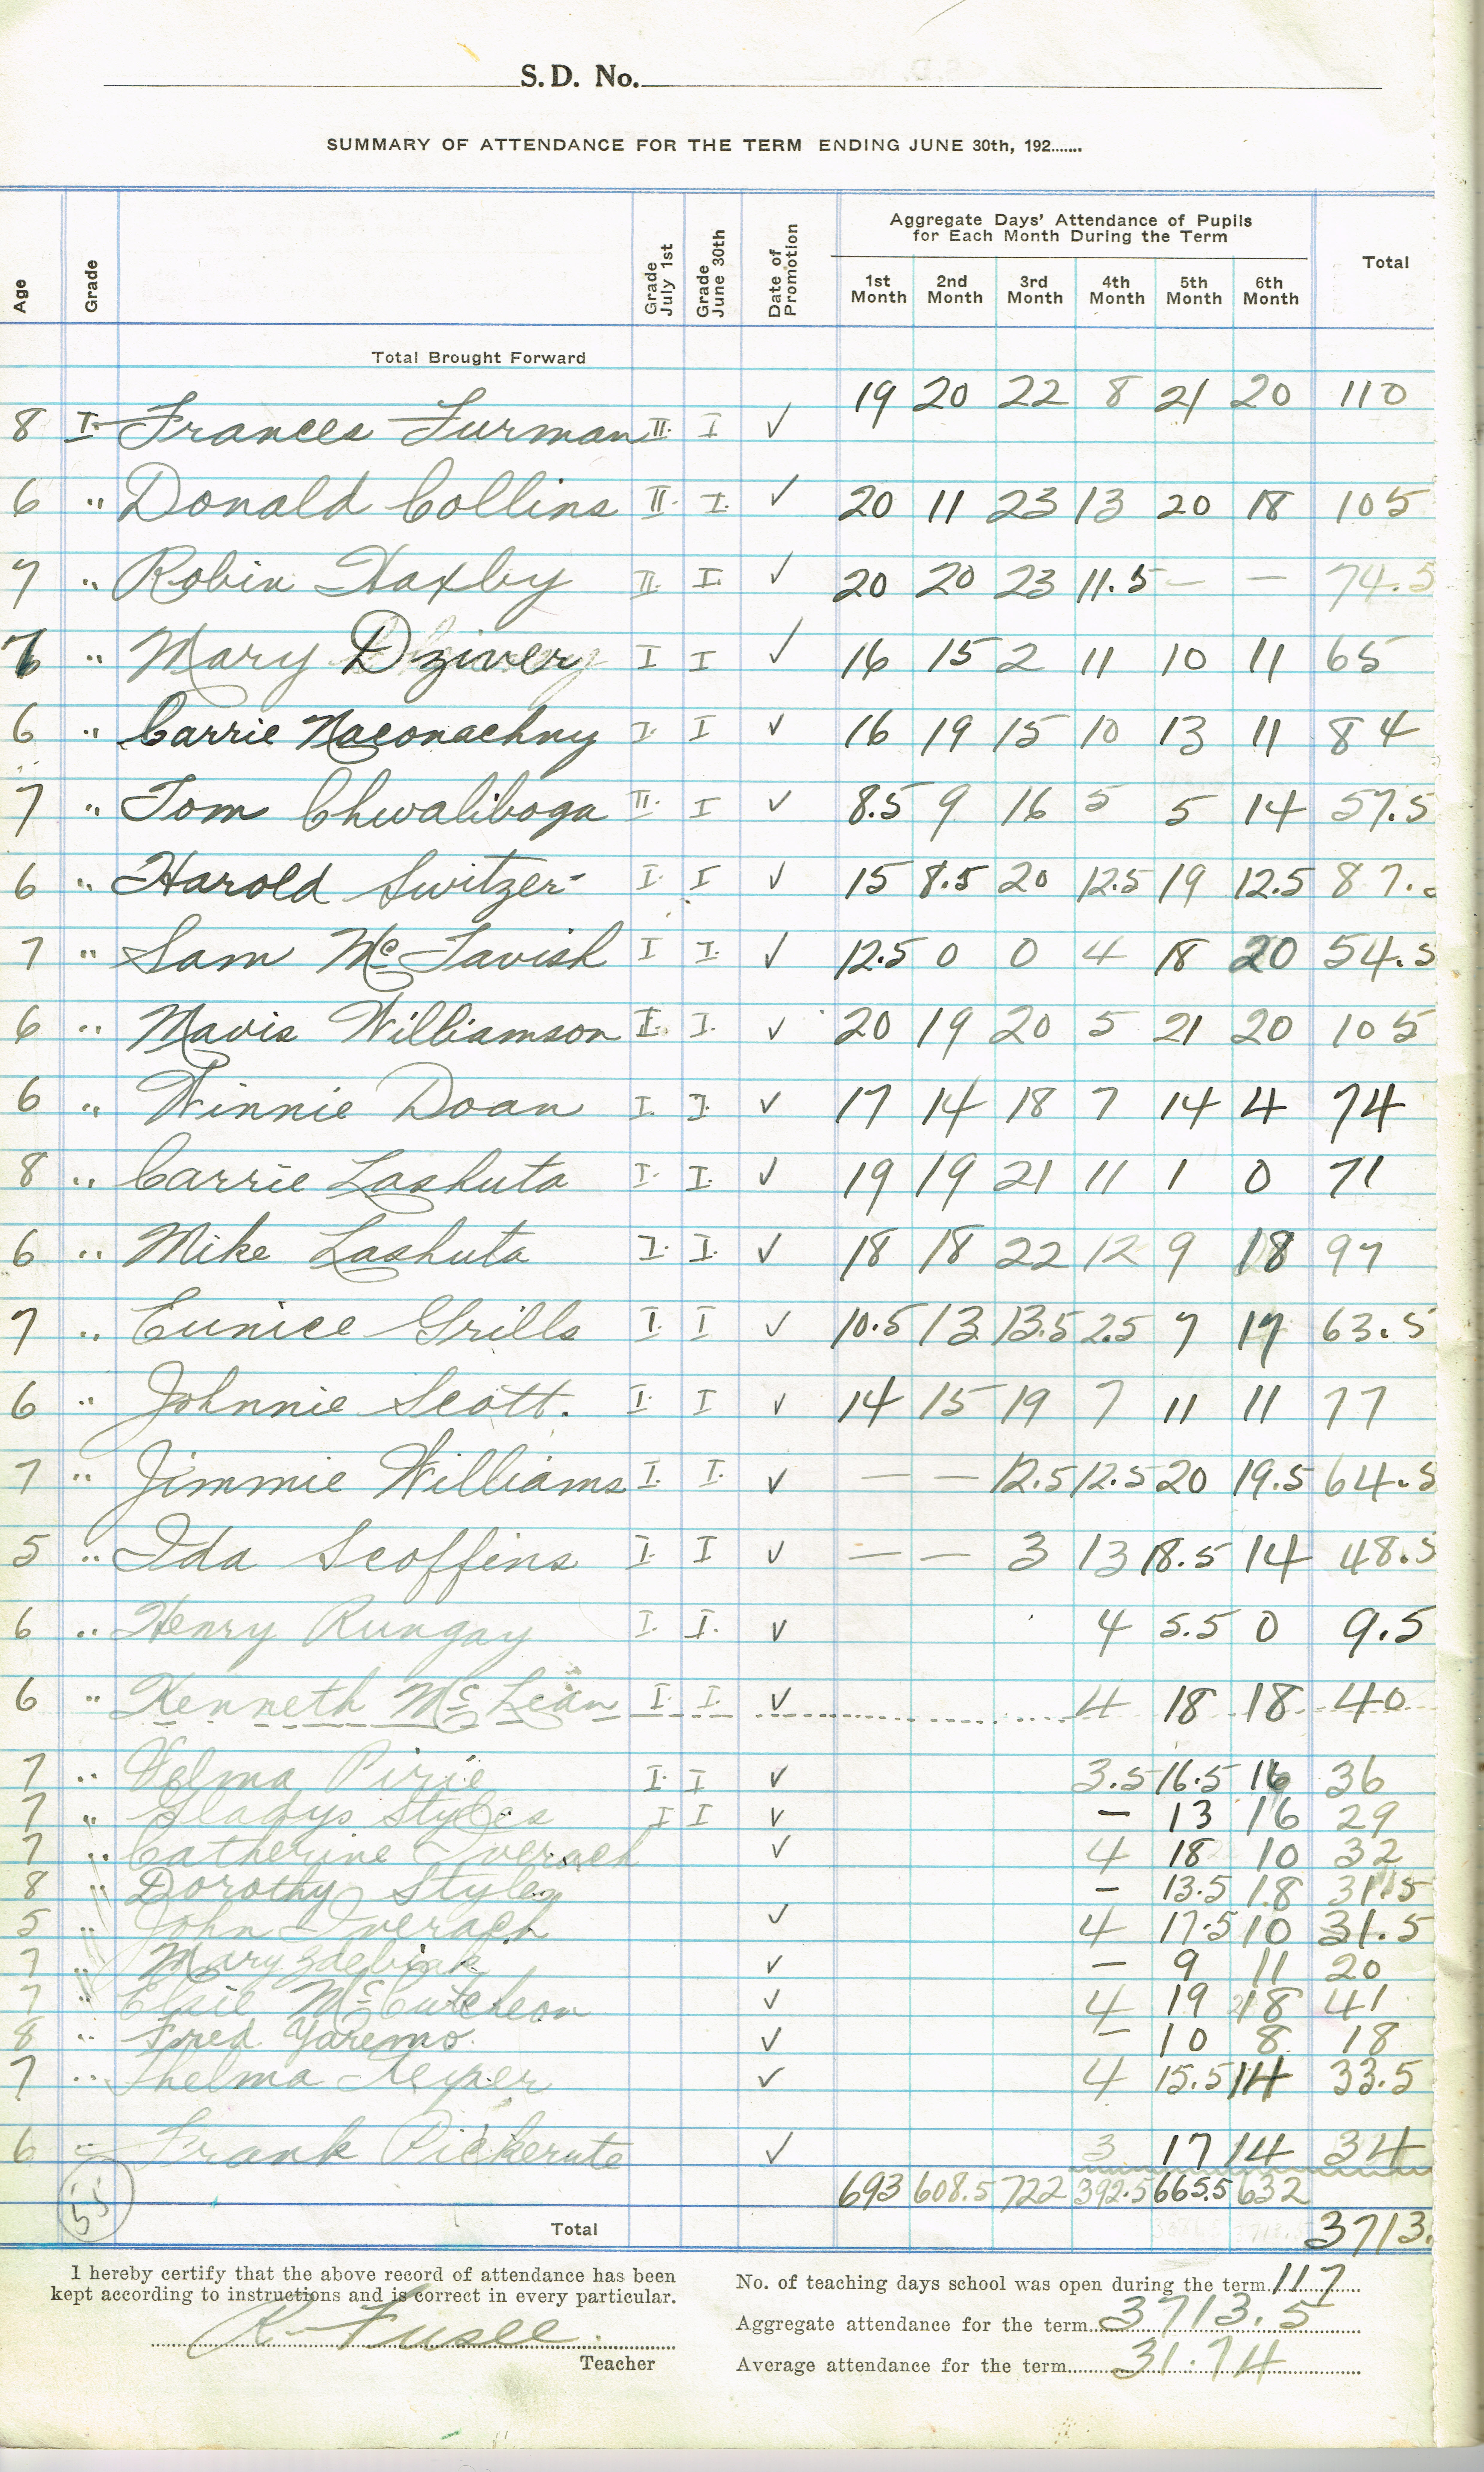 S.D. No.
SUMMARY OF ATTENDANCE FOR THE TERM ENDING JUNE 30th, 192.......
Age Grade Grade July 1st Grade June 30th Date of Promotion Aggregate Days' Attendance of Pupils for Each Month During the Term Total
1st Month 2nd Month 3rd Month 4th Month 5th Month 6th Month
Total Brought Forward
8 I Frances Furman II I ✓ 19 20 22 8 21 20 110
6 " Donald Collins II I ✓ 20 11 23 13 20 18 105
7 " Robin Haxby II I ✓ 20 20 23 11.5 — — 74.5
7 " Mary Dzivery I I ✓ 16 15 2 11 10 11 65
6 " Carrie Naconachny I I ✓ 16 19 15 10 13 11 84
7 " Tom Chwaliboga II I ✓ 8.5 9 16 5 5 14 57.5
6 " Harold Switzer I I ✓ 15 8.5 20 12.5 19 12.5 87.
7 " Sam McTavish I I ✓ 12.5 0 0 4 18 20 54.5
6 " Mavis Williamson I I ✓ 20 19 20 5 21 20 105
6 " Winnie Doan I I ✓ 17 14 18 7 14 4 74
8 " Carrie Lashuta I I ✓ 19 19 21 11 1 0 71
6 " Mike Lashuta I I ✓ 18 18 22 12 9 18 97
7 " Eunice Grills I I ✓ 10.5 13 13.5 2.5 7 17 63.5
6 " Johnnie Scott. I I ✓ 14 15 19 7 11 11 77
7 " Jimmie Williams I I ✓ — — 12.5 12.5 20 19.5 64.5
5 " Ida Scoffins I I ✓ — — 3 13 18.5 14 48.5
6 " Henry Rungay I I ✓ 4 5.5 0 9.5
6 " Kenneth McLean I I ✓ 4 18 18 40
7 " Velma Pirie I I ✓ 3.5 16.5 16 36
7 " Gladys Styles I I ✓ — 13 16 29
7 " Catherine Iverach ✓ 4 18 10 32
8 " Dorothy Styles — 13.5 18 31.5
5 " John Iverach ✓ 4 17.5 10 31.5
7 " Mary ✓ — 9 11 20
7 " Elsie McCutcheon ✓ 4 19 18 41
8 " Fred Yaremo ✓ — 10 8 18
7 " Thelma ✓ 4 15.5 14 33.5
6 " Frank Pickerute ✓ 3 17 14 34
693 608.5 722 392.5 665.5 632
55 Total 3713.
I hereby certify that the above record of attendance has been
kept according to instructions and is correct in every particular.
K. Fusee.
Teacher
No. of teaching days school was open during the term 117
Aggregate attendance for the term 3713.5
Average attendance for the term 31.74